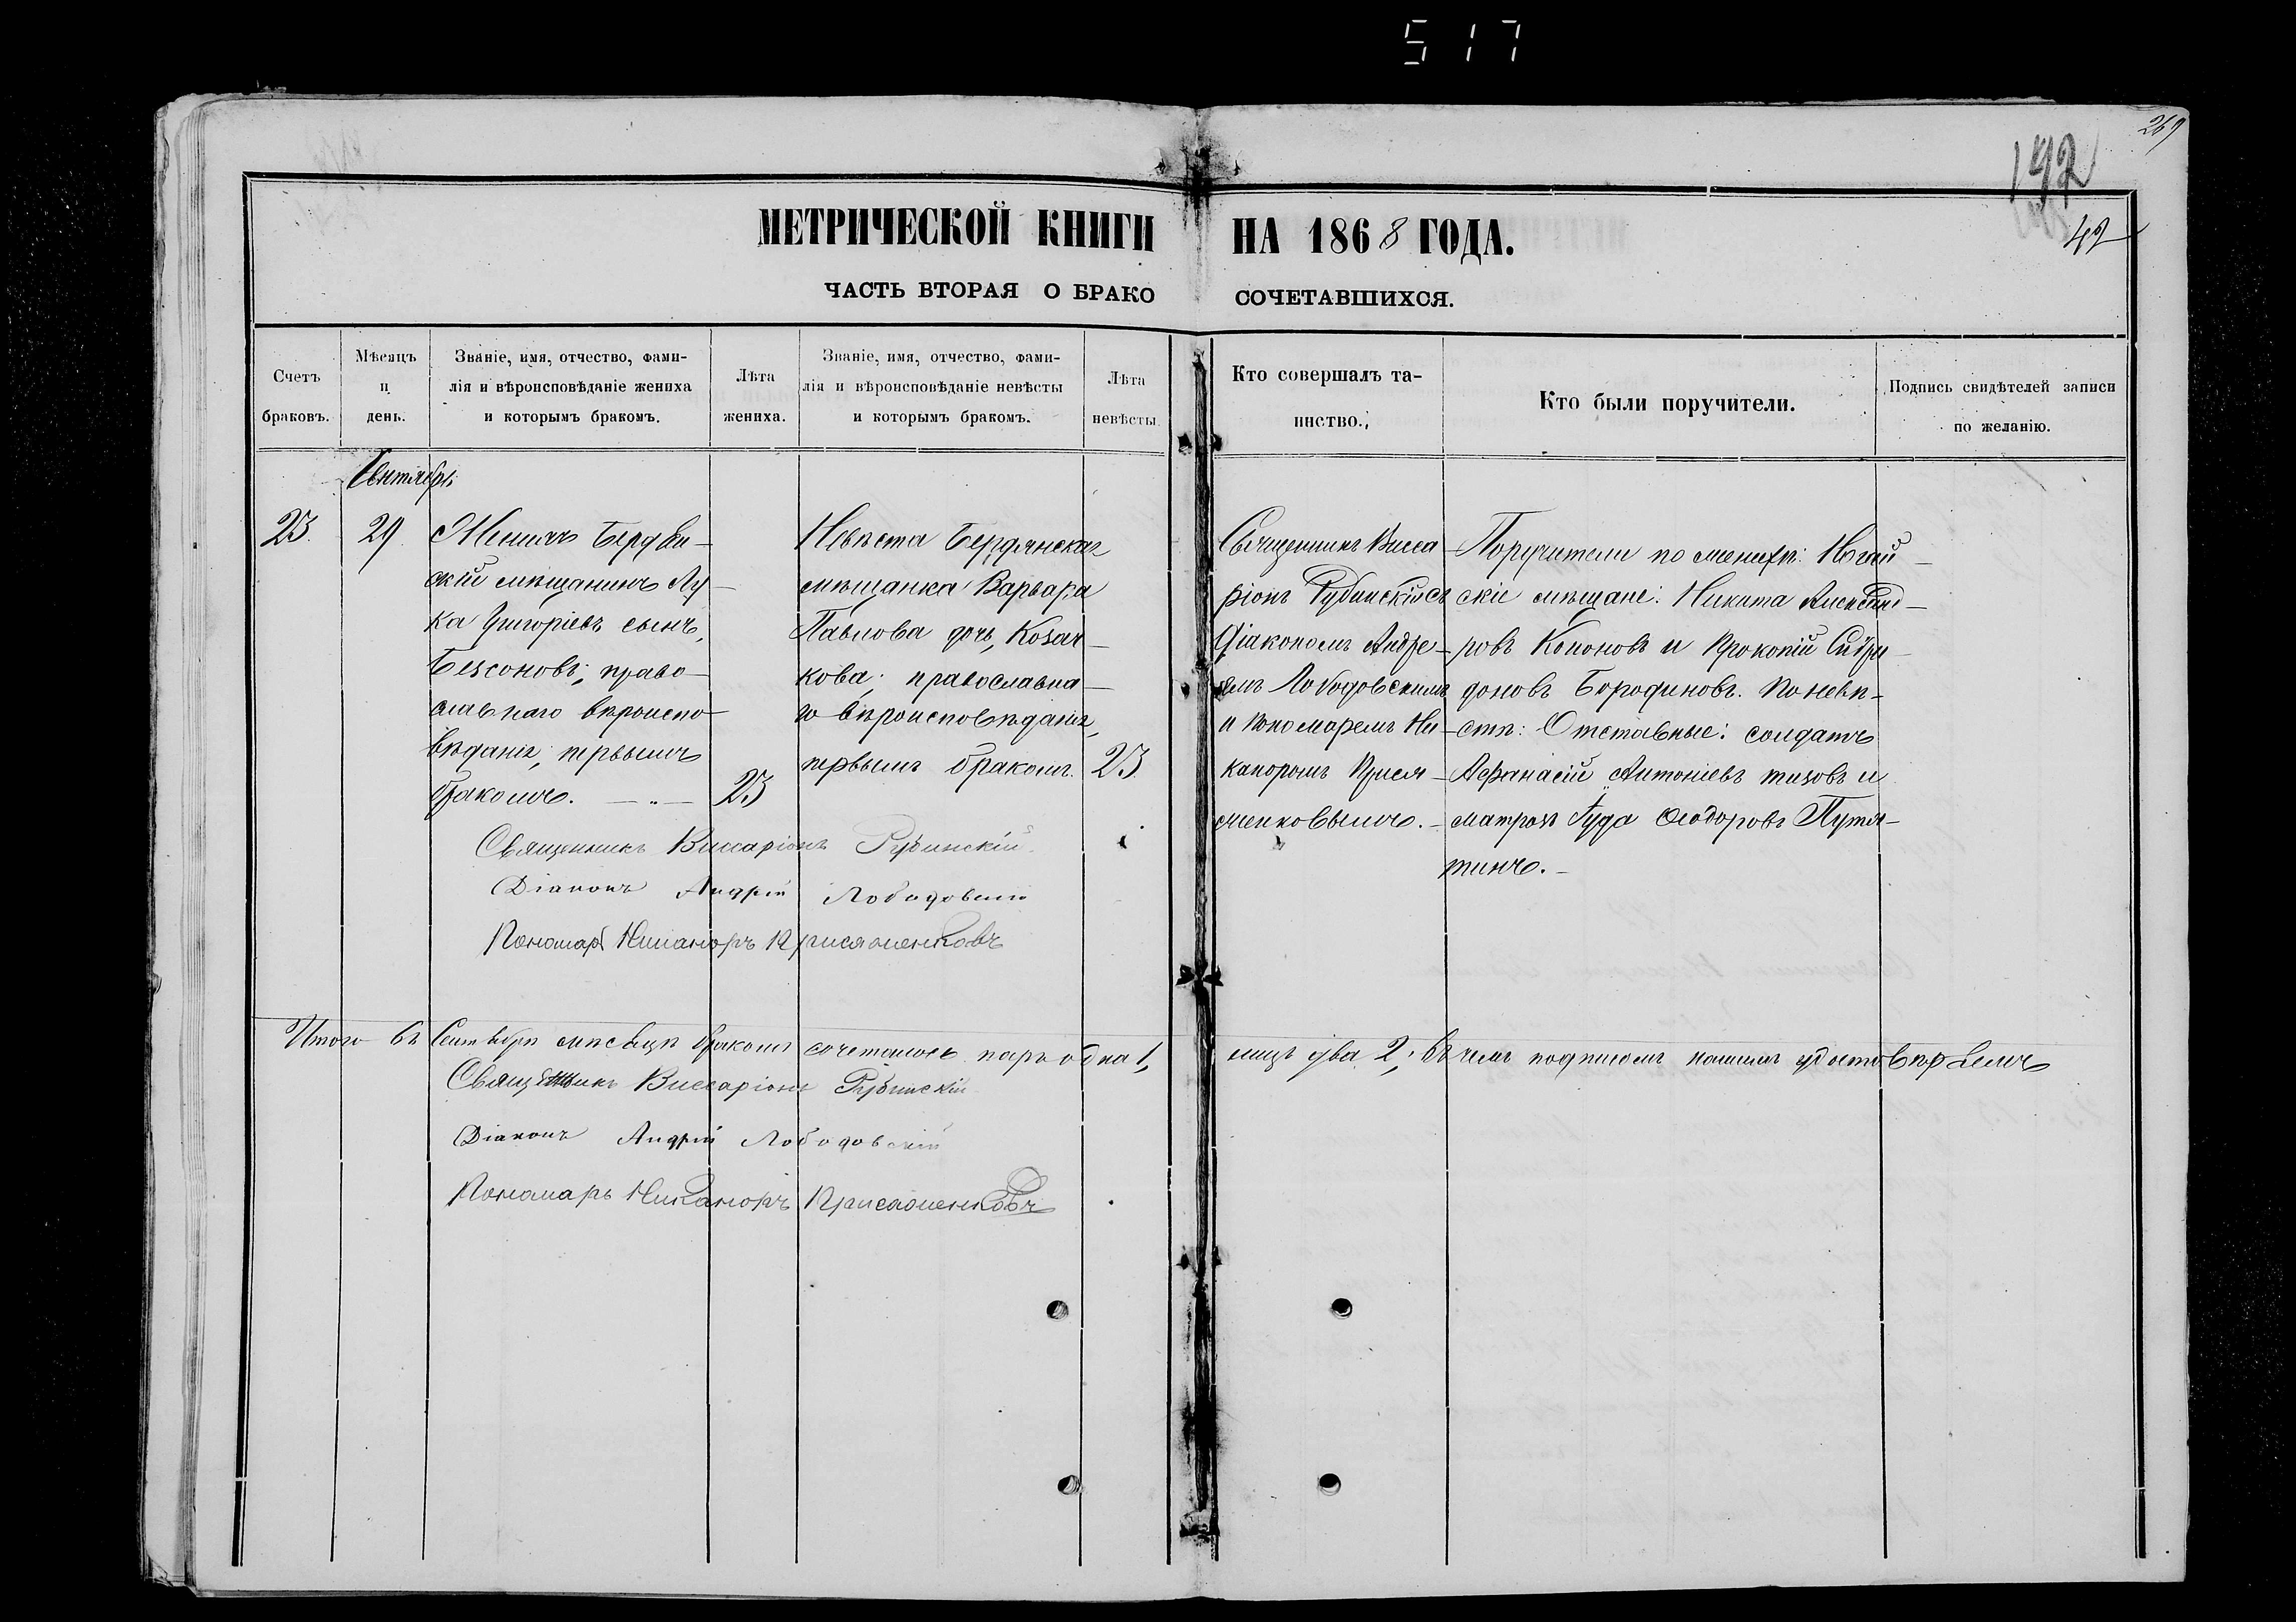 517
269
192
42
МЕТРИЧЕСКОЙ КНИГИ НА 1868 ГОДА.
ЧАСТЬ ВТОРАЯ О БРАКОСОЧЕТАВШИХСЯ.
Счетъ браковъ.
Мѣсяцъ и день.
Званіе, имя, отчество, фами-
лія и вѣроисповѣданіе жениха
и которымъ бракомъ.
Лѣта жениха.
Званіе, имя, отчество, фами-
лія и вѣроисповѣданіе невѣсты
и которымъ бракомъ.
Лѣта невѣсты.
Кто совершалъ та-
инство.
Кто были поручители.
Подпись свидѣтелей записи
по желанію.
Сентябрь
23.
29
Женихъ Бердян-
скій мѣщанинъ Лу-
ка Григоріевъ сынъ,
Безсоновъ, право-
славнаго вѣроиспо-
вѣданія, первымъ
бракомъ.
23
Невѣста Бердянская
мѣщанка Варвара
Павлова дочь, Козач-
кова; православна-
го вѣроисповѣданія,
первымъ бракомъ.
23.
Священникъ Висса-
ріонъ Рубинскій съ
Діакономъ Андре-
емъ Лободовскимъ
и пономаремъ Ни-
каноромъ Прися-
женковымъ.
Поручители по женихѣ: Ногай-
скіе мѣщане: Никита Александ-
ровъ Кононовъ и Прокопій Спири-
доновъ Бородиновъ. По невѣ-
стѣ: Отставные: солдатъ
Афанасій Антоніевъ и
матрозъ Іуда Ѳеодоровъ Путя-
тинъ.
Священникъ Виссаріонъ Рубинскій
Діаконъ Андрій Лободовскій
Пономарь Никаноръ Присяженковъ
Итого въ Сентябрѣ мѣсяцѣ бракомъ сочеталось паръ одна 1, лицъ два 2; въ чемъ подписомъ нашимъ удостовѣряемъ
Священникъ Виссаріонъ Рубинскій
Діаконъ Андрій Лободовскій
Пономарь Никаноръ Присяженковъ